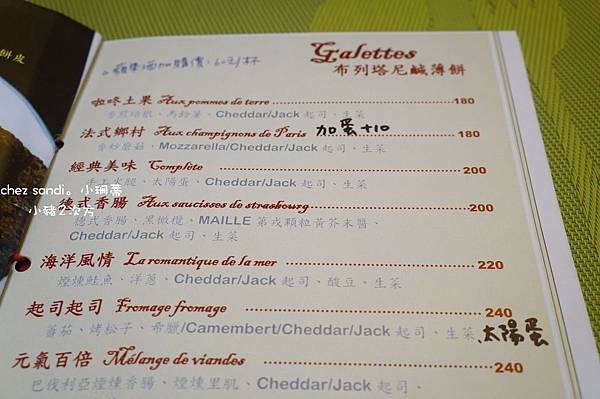 餅皮
。蘋果酒加購價：60元/杯
Galettes
布列塔尼鹹薄餅
啦咚土果 Aux pommes de terre 180
香煎培根、馬鈴薯、Cheddar/Jack 起司、生菜
法式鄉村 Aux champignons de Paris 加蛋+10 180
香炒蘑菇、Mozzarella/Cheddar/Jack 起司、生菜
經典美味 Complète 200
手工火腿、太陽蛋、Cheddar/Jack 起司、生菜
chez sandi。小珊蒂
小豬2次方
德式香腸 Aux saucisses de strasbourg 200
德式香腸、黑橄欖、MAILLE 第戎顆粒黃芥末醬、
Cheddar/Jack 起司、生菜
海洋風情 La romantique de la mer 220
煙燻鮭魚、洋蔥、Cheddar/Jack 起司、酸豆、生菜
起司起司 Fromage fromage 240
蕃茄、烤松子、希臘/Camembert/Cheddar/Jack 起司、生菜、太陽蛋
元氣百倍 Mélange de viandes 240
巴伐利亞煙燻香腸、煙燻里肌、Cheddar/Jack 起司、